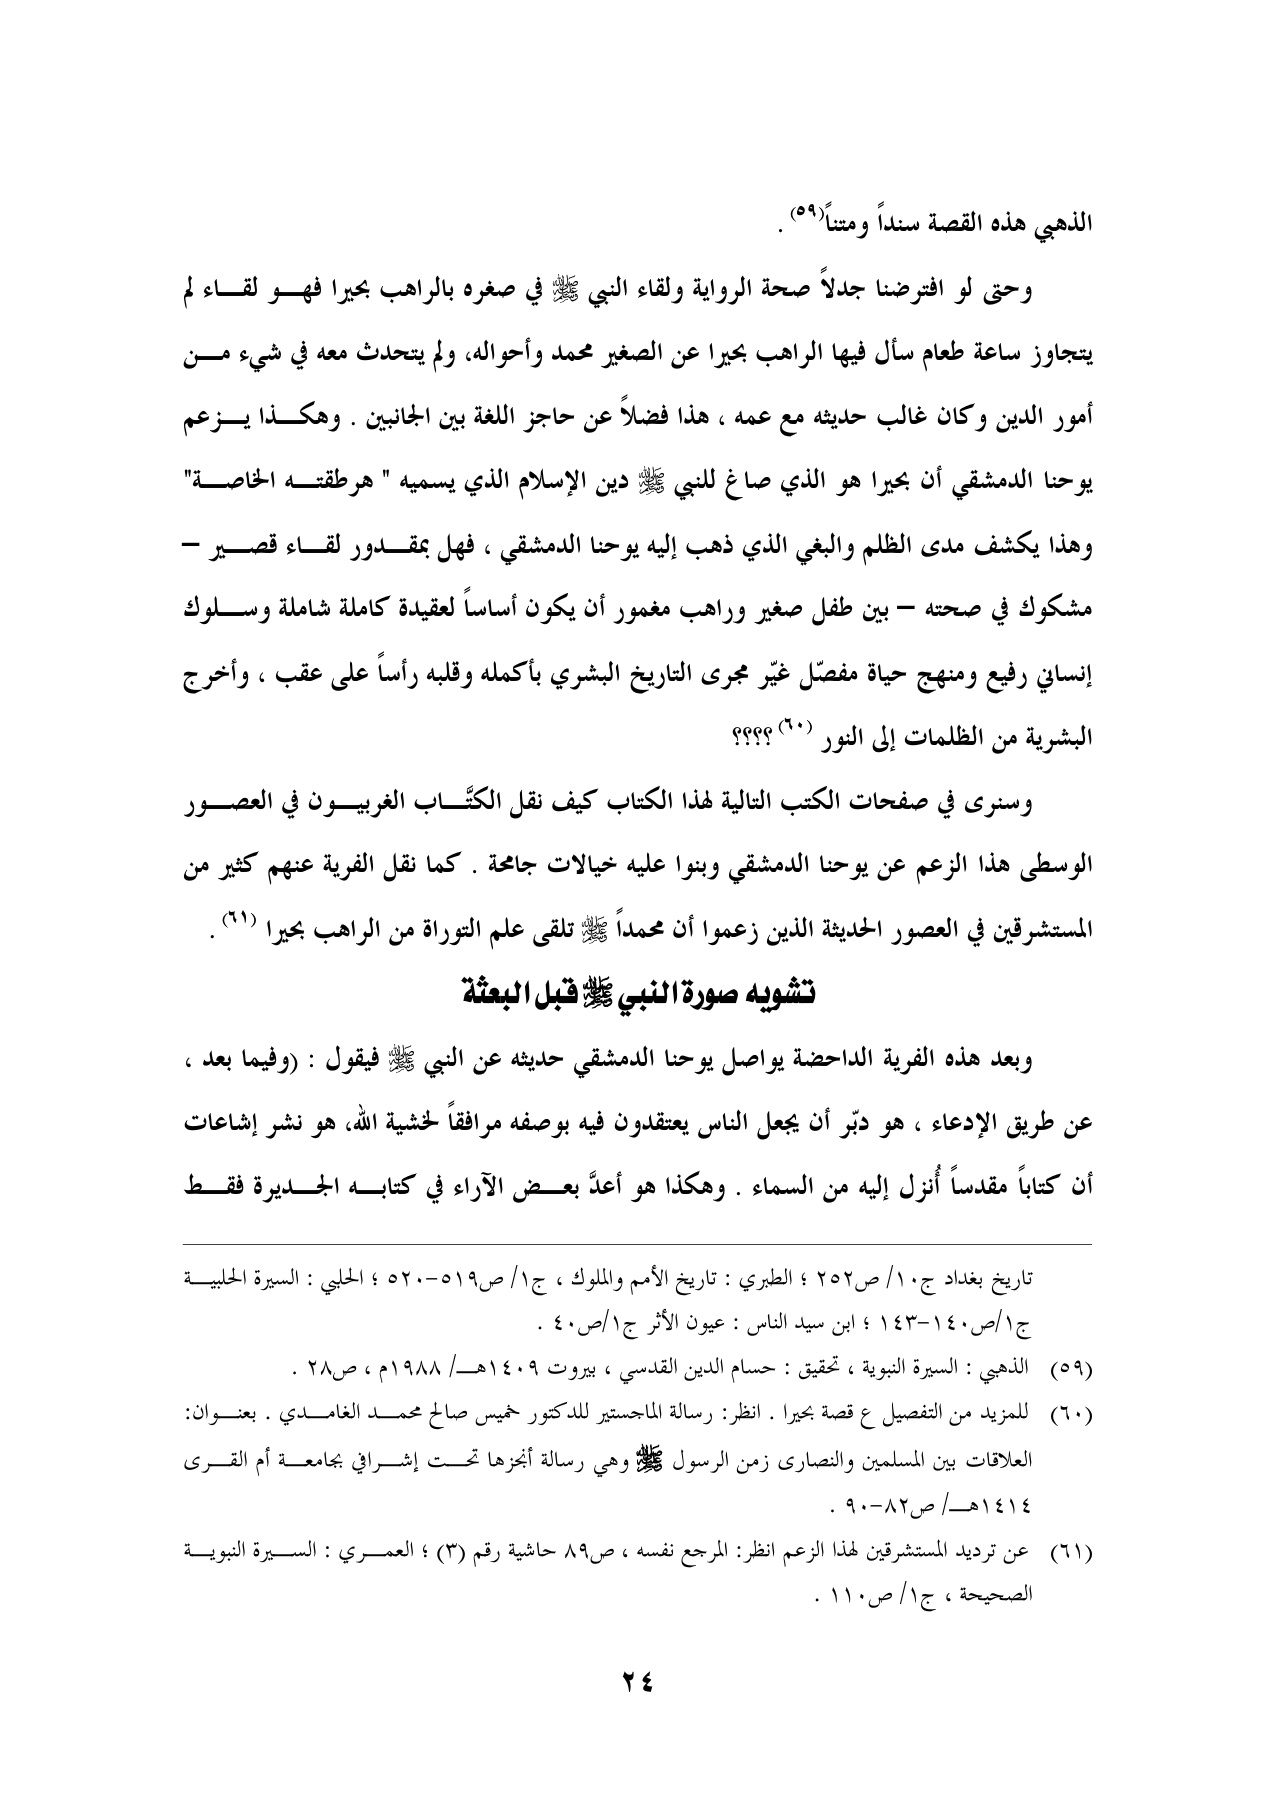 الذهبي هذه القصة سنداً ومتناً(٥٩) .
وحتى لو افترضنا جدلاً صحة الرواية ولقاء النبي ﷺ في صغره بالراهب بحيرا فهو لقاء لم
يتجاوز ساعة طعام سأل فيها الراهب بحيرا عن الصغير محمد وأحواله، ولم يتحدث معه في شيء من
أمور الدين وكان غالب حديثه مع عمه ، هذا فضلاً عن حاجز اللغة بين الجانبين . وهكذا يزعم
يوحنا الدمشقي أن بحيرا هو الذي صاغ للنبي ﷺ دين الإسلام الذي يسميه " هرطقته الخاصة"
وهذا يكشف مدى الظلم والبغي الذي ذهب إليه يوحنا الدمشقي ، فهل بمقدور لقاء قصير –
مشكوك في صحته – بين طفل صغير وراهب مغمور أن يكون أساساً لعقيدة كاملة شاملة وسلوك
إنساني رفيع ومنهج حياة مفصّل غيّر مجرى التاريخ البشري بأكمله وقلبه رأساً على عقب ، وأخرج
البشرية من الظلمات إلى النور (٦٠)؟؟؟؟
وسنرى في صفحات الكتب التالية لهذا الكتاب كيف نقل الكتَّاب الغربيون في العصور
الوسطى هذا الزعم عن يوحنا الدمشقي وبنوا عليه خيالات جامحة . كما نقل الفرية عنهم كثير من
المستشرقين في العصور الحديثة الذين زعموا أن محمداً ﷺ تلقى علم التوراة من الراهب بحيرا (٦١) .
تشويه صورة النبي ﷺ قبل البعثة
وبعد هذه الفرية الداحضة يواصل يوحنا الدمشقي حديثه عن النبي ﷺ فيقول : (وفيما بعد ،
عن طريق الإدعاء ، هو دبّر أن يجعل الناس يعتقدون فيه بوصفه مرافقاً لخشية الله، هو نشر إشاعات
أن كتاباً مقدساً أُنزل إليه من السماء . وهكذا هو أعدَّ بعض الآراء في كتابه الجديرة فقط
تاريخ بغداد ج١٠/ ص٢٥٢ ؛ الطبري : تاريخ الأمم والملوك ، ج١/ ص٥١٩-٥٢٠ ؛ الحلبي : السيرة الحلبية
ج١/ص١٤٠-١٤٣ ؛ ابن سيد الناس : عيون الأثر ج١/ص٤٠ .
(٥٩) الذهبي : السيرة النبوية ، تحقيق : حسام الدين القدسي ، بيروت ١٤٠٩هـ/ ١٩٨٨م ، ص٢٨ .
(٦٠) للمزيد من التفصيل ع قصة بحيرا . انظر: رسالة الماجستير للدكتور خميس صالح محمد الغامدي . بعنوان:
العلاقات بين المسلمين والنصارى زمن الرسول ﷺ وهي رسالة أنجزها تحت إشرافي بجامعة أم القرى
١٤١٤هـ/ ص٨٢-٩٠ .
(٦١) عن ترديد المستشرقين لهذا الزعم انظر: المرجع نفسه ، ص٨٩ حاشية رقم (٣) ؛ العمري : السيرة النبوية
الصحيحة ، ج١/ ص١١٠ .
٢٤